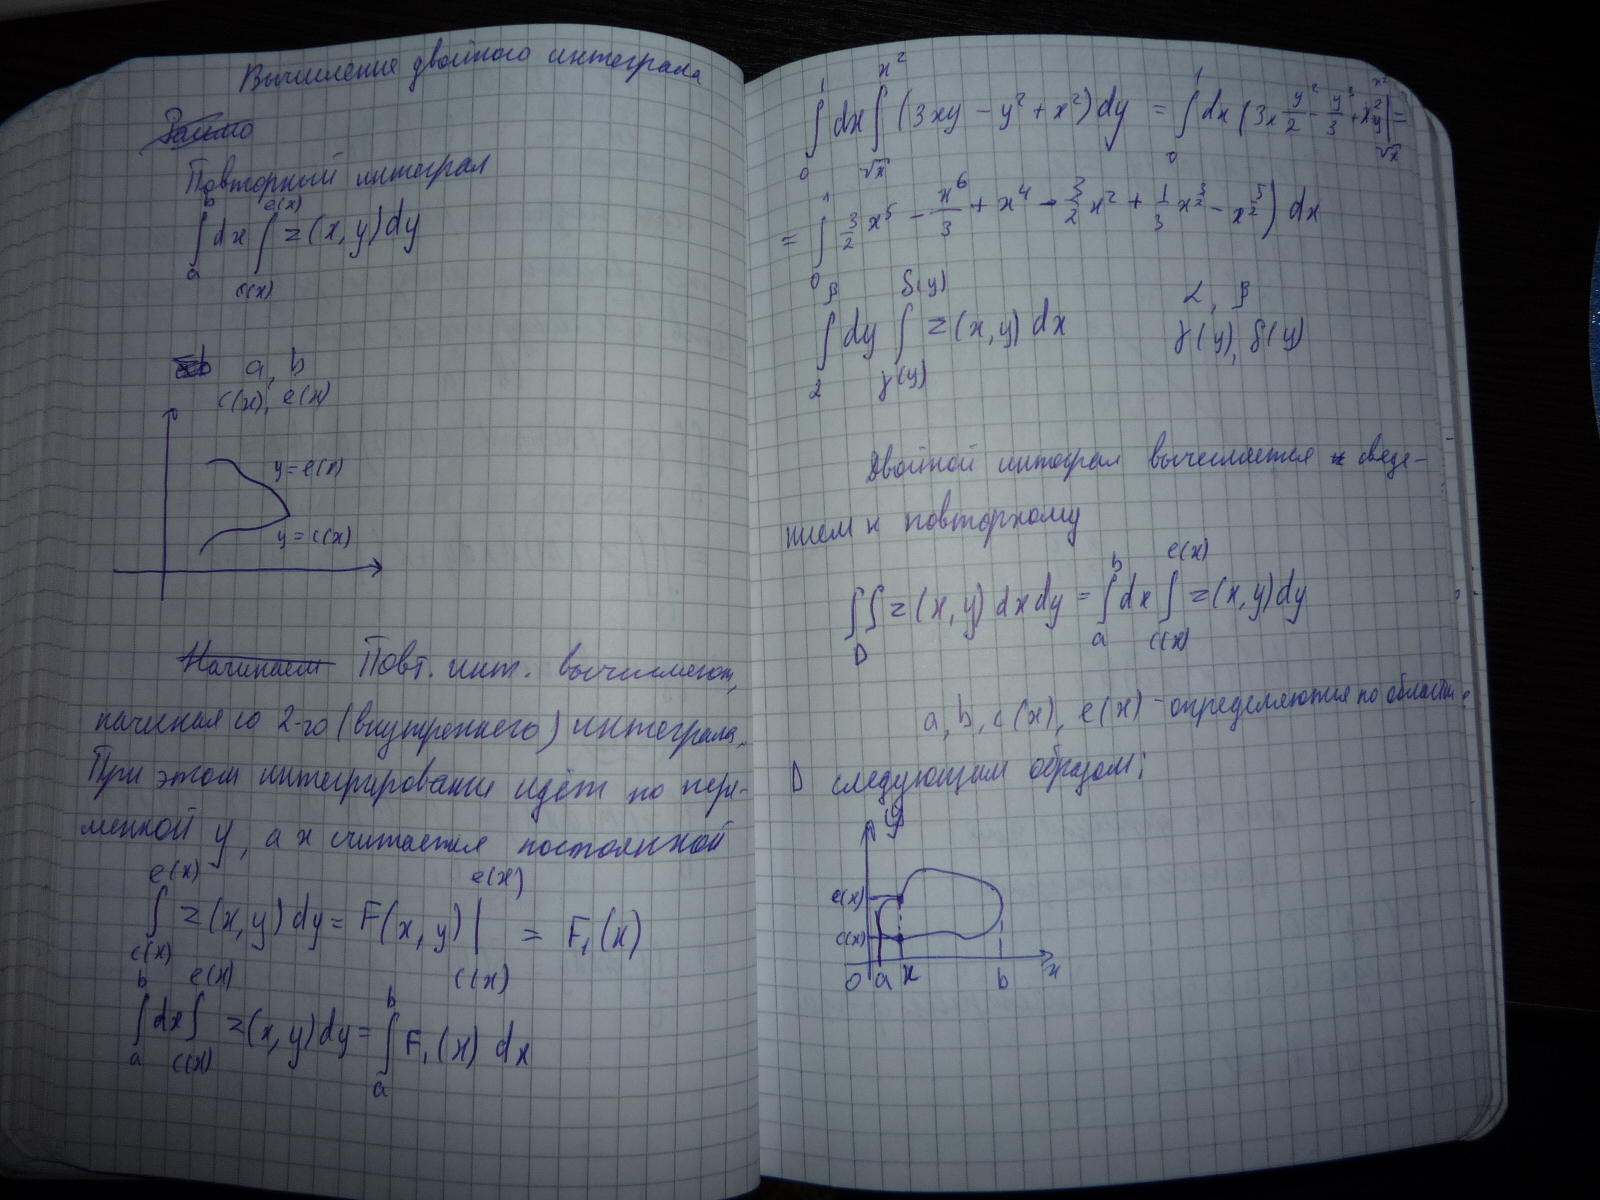 Вычисление двойного интеграла
Повторный интеграл
∫_a^b dx ∫_{c(x)}^{e(x)} z(x,y)dy
a, b
c(x), e(x)
y=e(x)
y=c(x)
Начинаем Повт. инт. вычисляют,
начиная со 2-го (внутреннего) интеграла.
При этом интегрирование идёт по пере-
менной y, а x считается постоянной
∫_{c(x)}^{e(x)} z(x,y)dy = F(x,y)|_{c(x)}^{e(x)} = F₁(x)
∫_a^b dx ∫_{c(x)}^{e(x)} z(x,y)dy = ∫_a^b F₁(x) dx
∫_0^1 dx ∫_{√x}^{x²} (3xy − y² + x²)dy = ∫_0^1 dx (3x y²/2 − y³/3 + x²y|_{√x}^{x²} =
= ∫_0^1 3/2 x⁵ − x⁶/3 + x⁴ − 3/2 x² + 1/3 x^{3/2} − x^{5/2}) dx
∫_α^β dy ∫_{γ(y)}^{δ(y)} z(x,y) dx
α, β
γ(y), δ(y)
Двойной интеграл вычисляется сведе-
нием к повторному
∫∫_D z(x,y) dxdy = ∫_a^b dx ∫_{c(x)}^{e(x)} z(x,y)dy
a, b, c(x), e(x) - определяются по области
D следующим образом:
y
e(x)
c(x)
0 a x b x